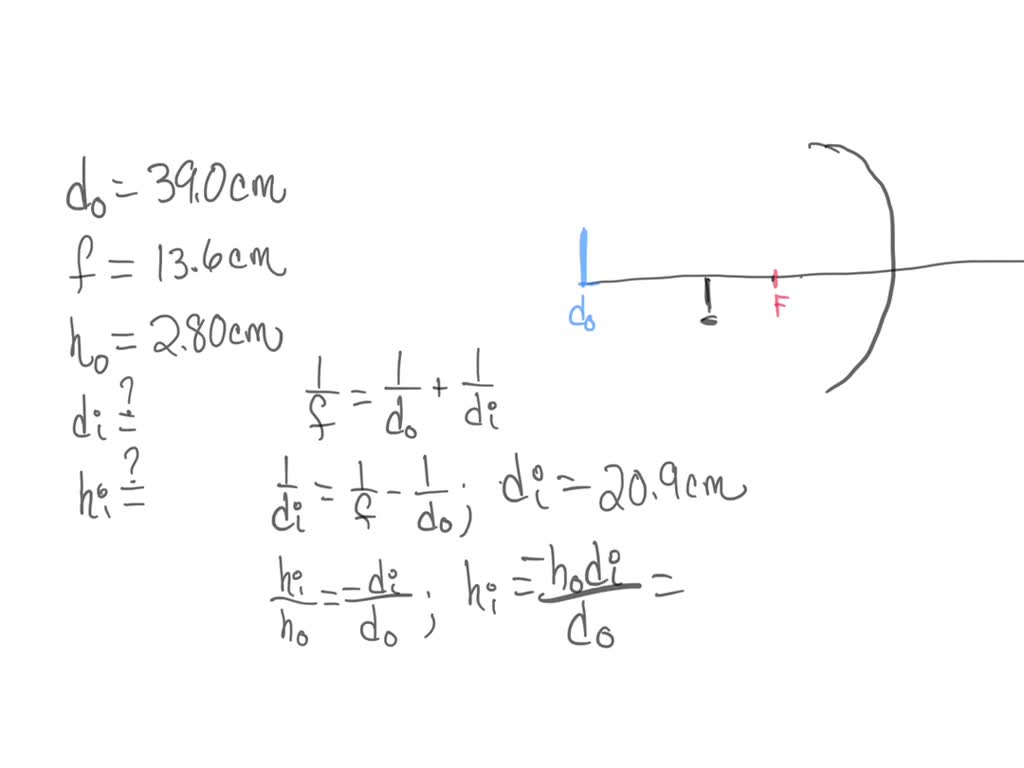 do = 39.0cm
f = 13.6cm
ho = 2.80cm
di = ?
hi = ?
1/f = 1/do + 1/di
1/di = 1/f - 1/do; di = 20.9cm
hi/ho = -di/do; hi = -hodi/do =
do c F